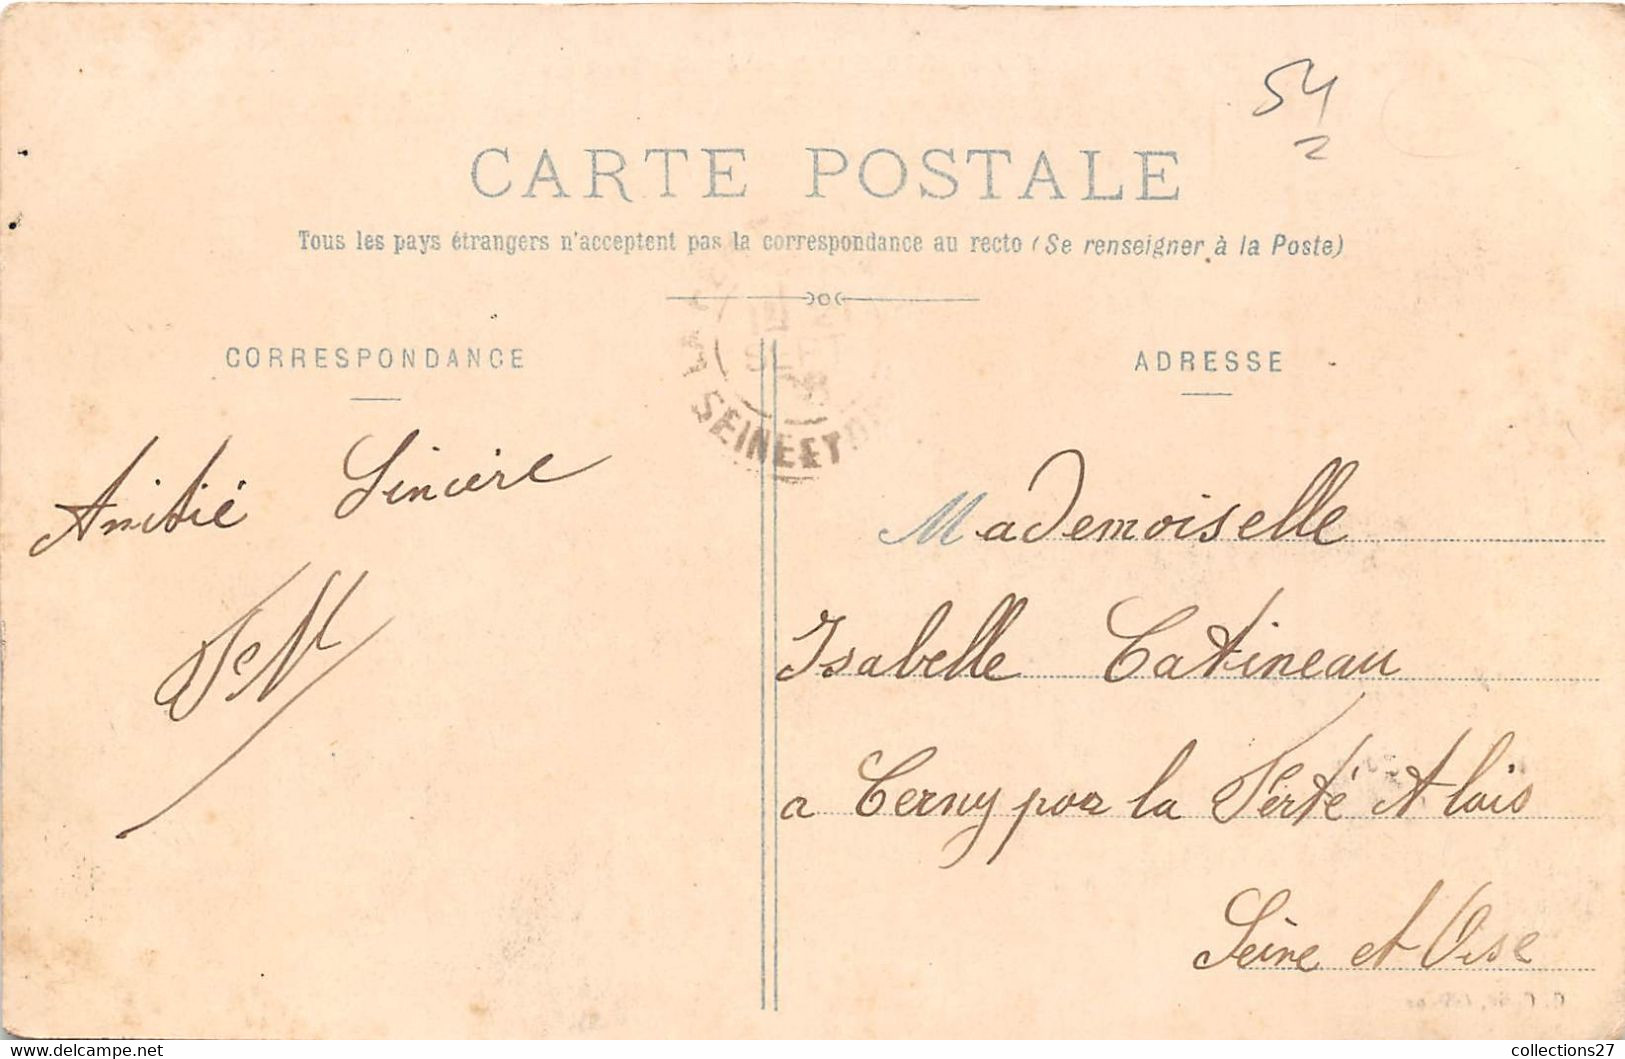 54
2
CARTE POSTALE
Tous les pays étrangers n'acceptent pas la correspondance au recto (Se renseigner à la Poste)
CORRESPONDANCE
ADRESSE
SEINE ET
Amitié Sincère
Mademoiselle
Isabelle Catineau
a Cerny par la Ferté Alais
Seine et Oise
collections27